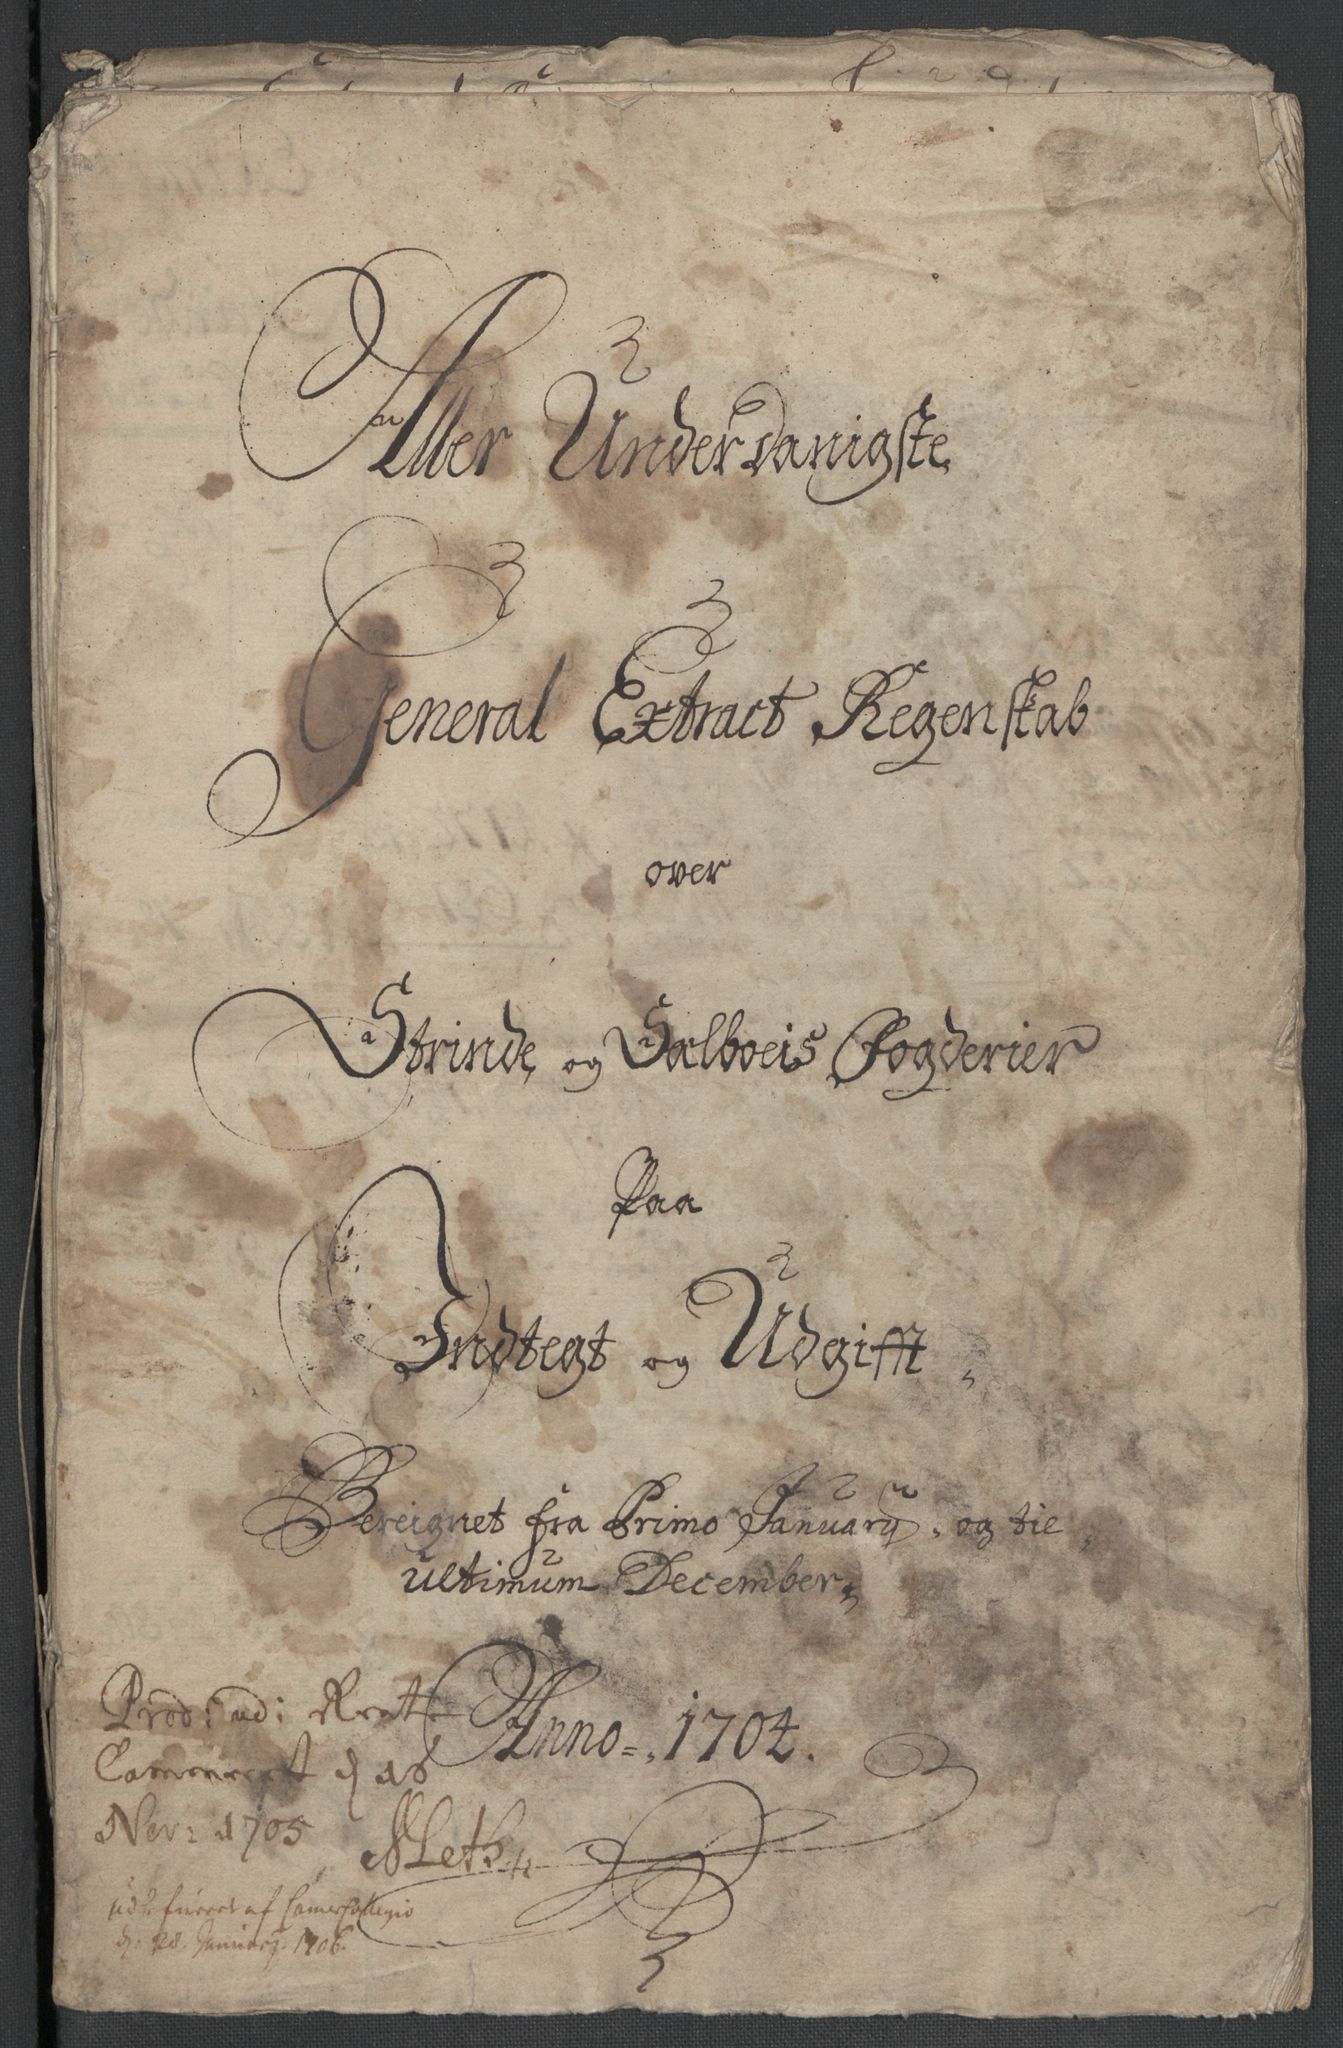 Aller Underdanigste
General Extract Regenskab
over
Strinde og Sælboeis Fogderier
Paa
Indtegt og Udgifft
Bereignet fra Primo January, og til
ultimum December,
Anno 1704.
Prod: ud: Rent
Cammeret d 18
Nov: 1705
af Camer Collegio
d. 28. January. 1706.